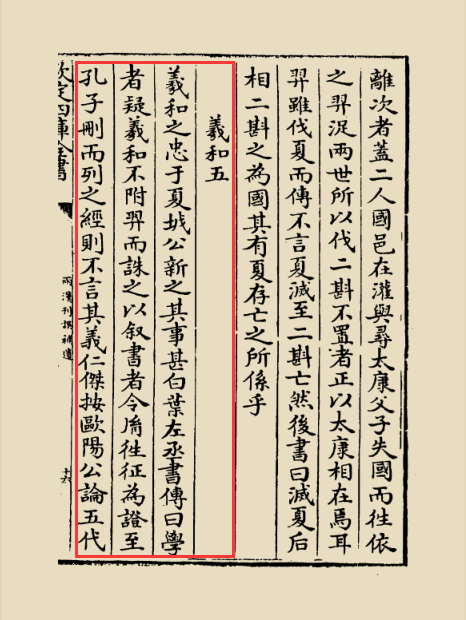 離次者蓋二人國邑在濰與尋太康父子失國而往依
之羿浞兩世所以伐二斟不置者正以太康相在焉耳
羿雖伐夏而傳不言夏滅至二斟亡然後書曰滅夏后
相二斟之為國其有夏存亡之所係乎
羲和五
羲和之忠于夏坡公新之其事甚白葉左丞書傳曰學
者疑羲和不附羿而誅之以叙書者令胤徃征為證至
孔子刪而列之經則不言其義仁傑按歐陽公論五代
欽定四庫全書
兩漢刊誤補遺